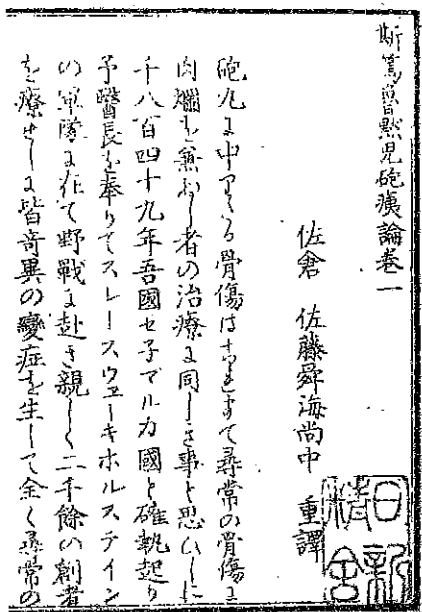 斯篤魯黙児砲痍論巻一
佐倉 佐藤舜海尚中 重譯
日新精舎
砲丸に中りたる骨傷はこれまて尋常の骨傷に
肉爛を兼ねし者の治療に同しき事と思ひしに
千八百四十九年吾國セ子マルカ國と確執起り
予醫長を奉りてスレースウェーキホルステイン
の軍隊に在て野戦に赴き親しく二千餘の創者
を療せしに皆奇異の變症を生して全く尋常の